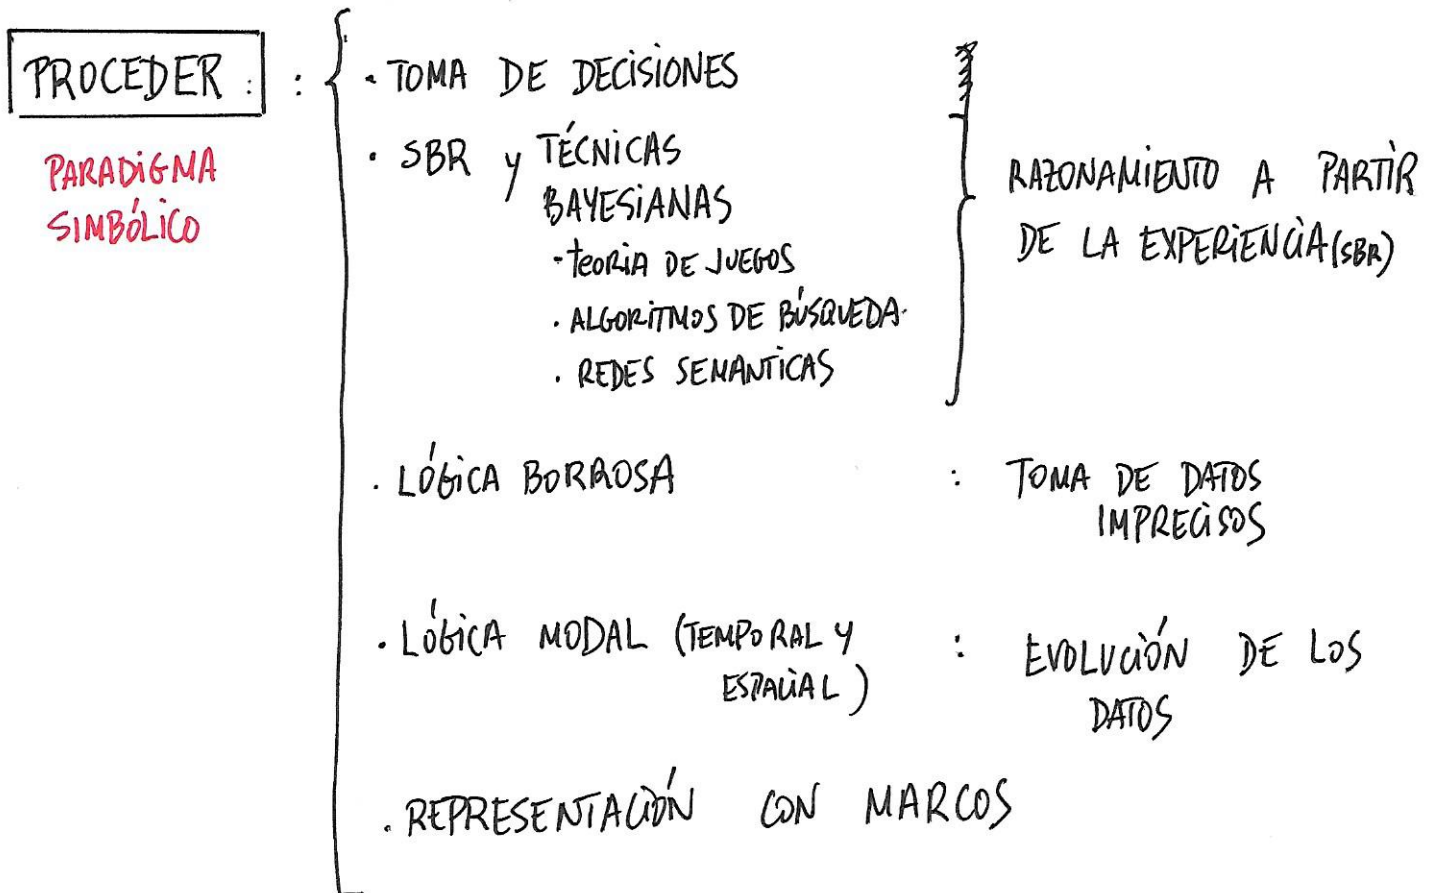 PROCEDER : :
PARADIGMA
SIMBÓLICO
· TOMA DE DECISIONES
· SBR y TÉCNICAS
BAYESIANAS
- TEORIA DE JUEGOS
· ALGORITMOS DE BÚSQUEDA.
· REDES SEMANTICAS
RAZONAMIENTO A PARTIR
DE LA EXPERIENCIA (SBR)
· LÓGICA BORROSA : TOMA DE DATOS
IMPRECISOS
· LÓGICA MODAL (TEMPORAL Y : EVOLUCIÓN DE LOS
ESPACIAL) DATOS
· REPRESENTACIÓN CON MARCOS